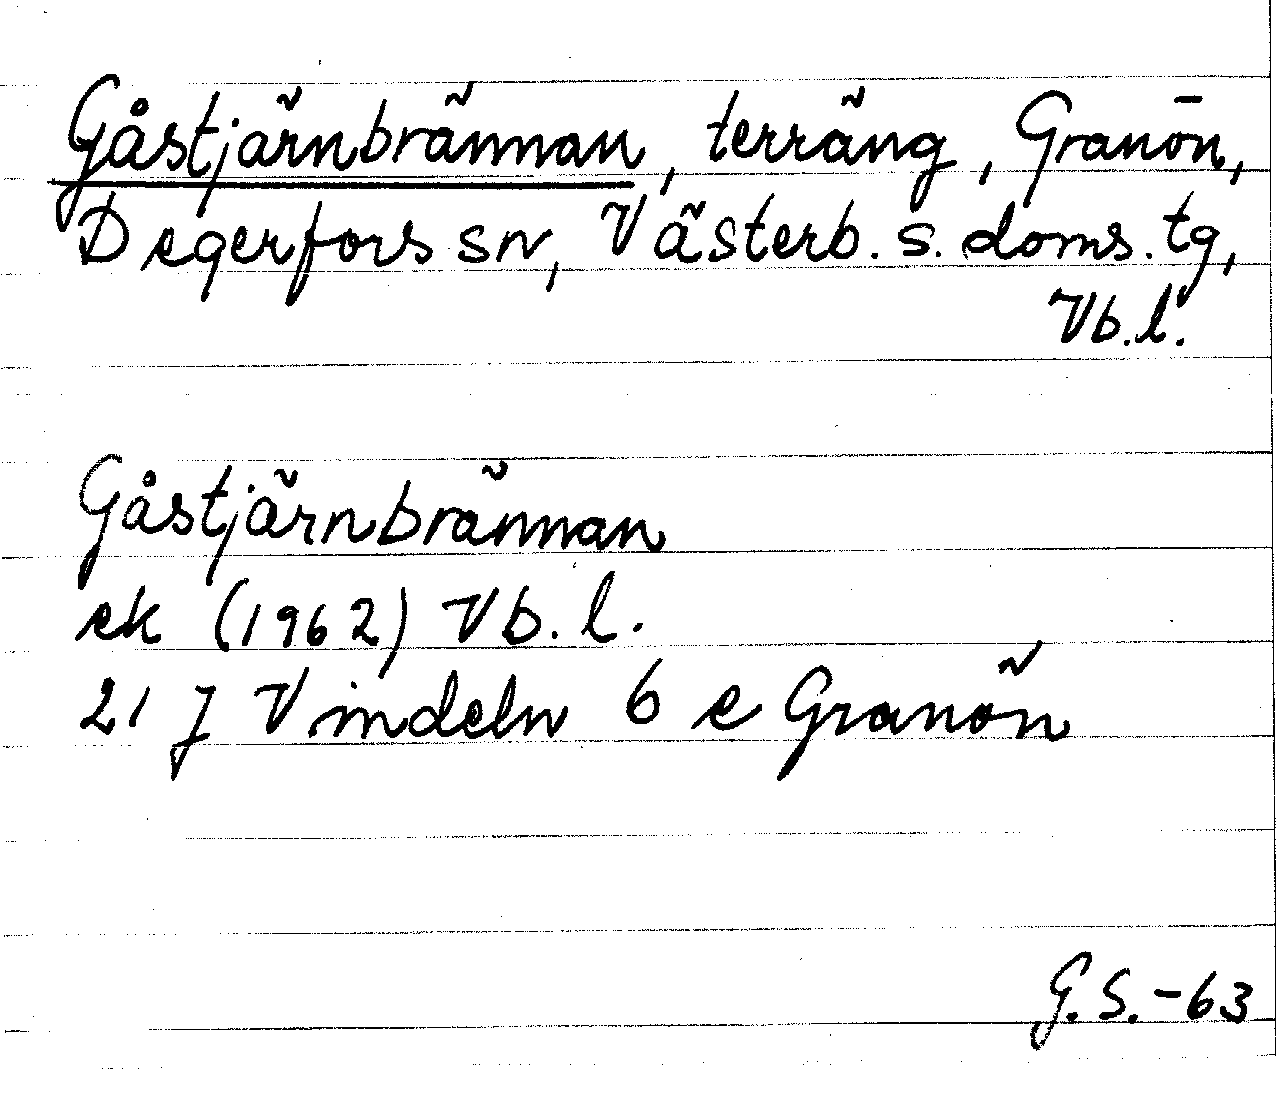 Gåstjärnbrännan, terräng, Granön,
Degerfors sn, Västerb. s. doms. tg,
Vb. l.
Gåstjärnbrännan
ek (1962) Vb. l.
21 J Vindeln 6 e Granön
G.S. -63